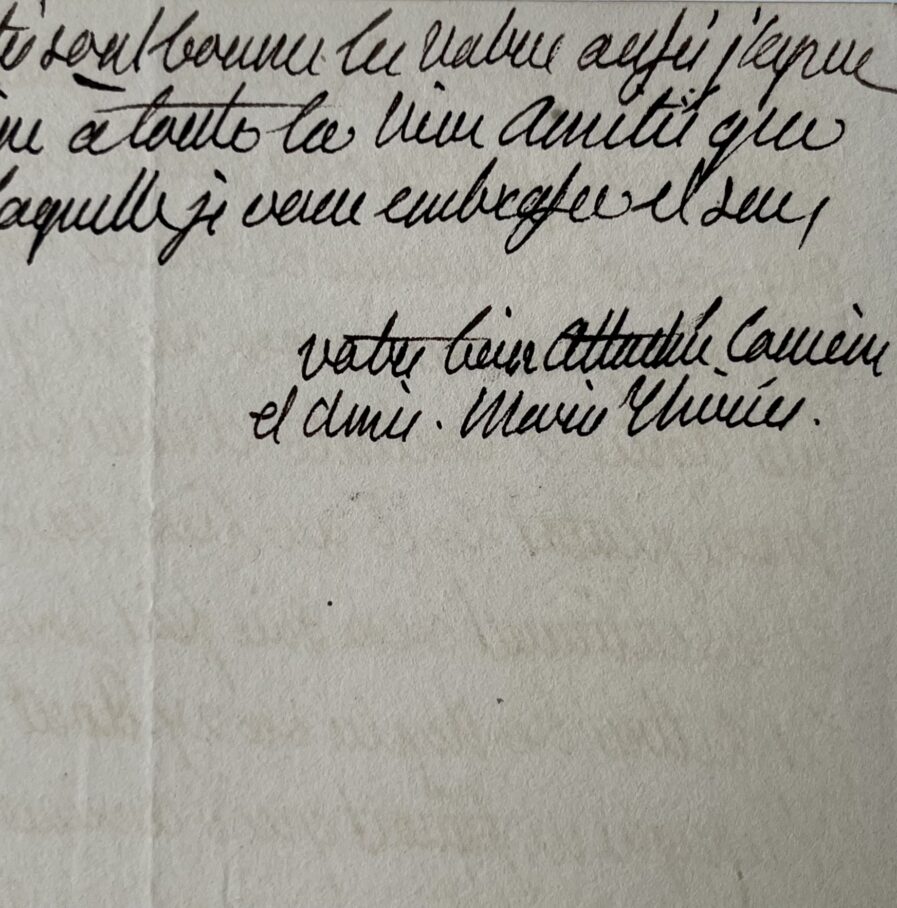 sont bonne les votre aussi j'espere
à toute la vieille amitié que
laquelle je vous embrasse et suis,
votre bien attachée
et amie. Marie